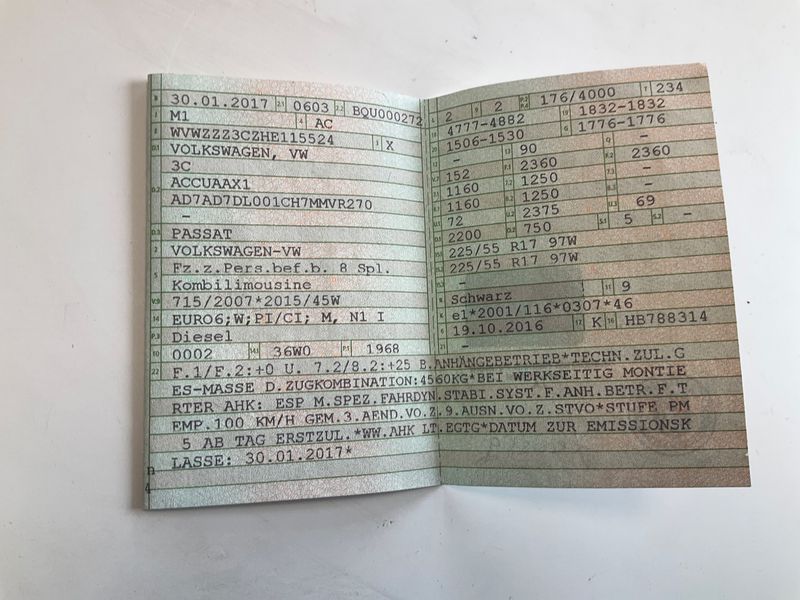 B 30.01.2017 2.1 0603 2.2 BQU000272
J M1 4 AC
E WVWZZZ3CZHE115524 3 X
D.1 VOLKSWAGEN, VW
3C
D.2 ACCUAAX1
AD7AD7DL001CH7MMVR270
–
D.3 PASSAT
2 VOLKSWAGEN-VW
5 Fz.z.Pers.bef.b. 8 Spl.
Kombilimousine
V.9 715/2007*2015/45W
14 EURO6;W;PI/CI; M, N1 I
P.3 Diesel
10 0002 14.1 36W0 P.1 1968
L 2 9 2 P.2 P.4 176/4000 T 234
18 4777-4882 19 1832-1832
20 1506-1530 G 1776-1776
12 – 13 90 Q –
V.7 152 F.1 2360 F.2 2360
7.1 1160 7.2 1250 7.3 –
8.1 1160 8.2 1250 8.3 –
U.1 72 U.2 2375 U.3 69
O.1 2200 O.2 750 S.1 5 S.2 –
15.1 225/55 R17 97W
15.2 225/55 R17 97W
15.3 –
R Schwarz 11 9
K e1*2001/116*0307*46
6 19.10.2016 17 K 16 HB788314
21 –
22 F.1/F.2:+0 U. 7.2/8.2:+25 B.ANHÄNGEBETRIEB*TECHN.ZUL.G
ES-MASSE D.ZUGKOMBINATION:4560KG*BEI WERKSEITIG MONTIE
RTER AHK: ESP M.SPEZ.FAHRDYN.STABI.SYST.F.ANH.BETR.F.T
EMP.100 KM/H GEM.3.AEND.VO.Z.9.AUSN.VO.Z.STVO*STUFE PM
5 AB TAG ERSTZUL.*WW.AHK LT.EGTG*DATUM ZUR EMISSIONSK
LASSE: 30.01.2017*